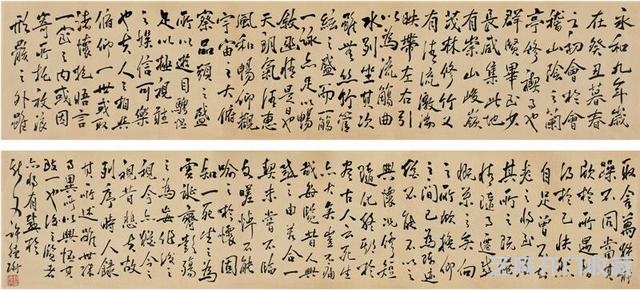 永和九年歲
在癸丑暮春
之初會於會
稽山陰之蘭
亭修禊事也
群賢畢至少
長咸集此地
有崇山峻嶺
茂林修竹又
有清流激湍
映帶左右引
以為流觴曲
水列坐其次
雖無絲竹管
絃之盛一觴
一詠亦足以暢
敘幽情是日也
天朗氣清惠
風和暢仰觀
宇宙之大俯
察品類之盛
所以遊目騁懷
足以極視聽
之娛信可樂
也夫人之相與
俯仰一世或取
諸懷抱晤言
一室之內或因
寄所托放浪
形骸之外雖
取舍萬殊靜
躁不同當其
欣於所遇暫
得於己快然
自足曾不知
老之將至及
其所之既惓
情隨事遷感
慨係之矣向
之所欣俛仰
之間已為陳迹
猶不能不以之
興懷況修短
隨化終期於
盡古人云死生
亦大矣豈不痛
哉每覽昔人興
感之由若合一
契未嘗不臨
文嗟悼不能
喻之於懷固
知一死生為
虛誕齊彭殤
為妄作後之
視今亦猶今之
視昔悲夫故
列序時人錄
其所述雖世殊
事異所以興懷其
致一也後之覽者
亦將有感於
斯文 許德珩